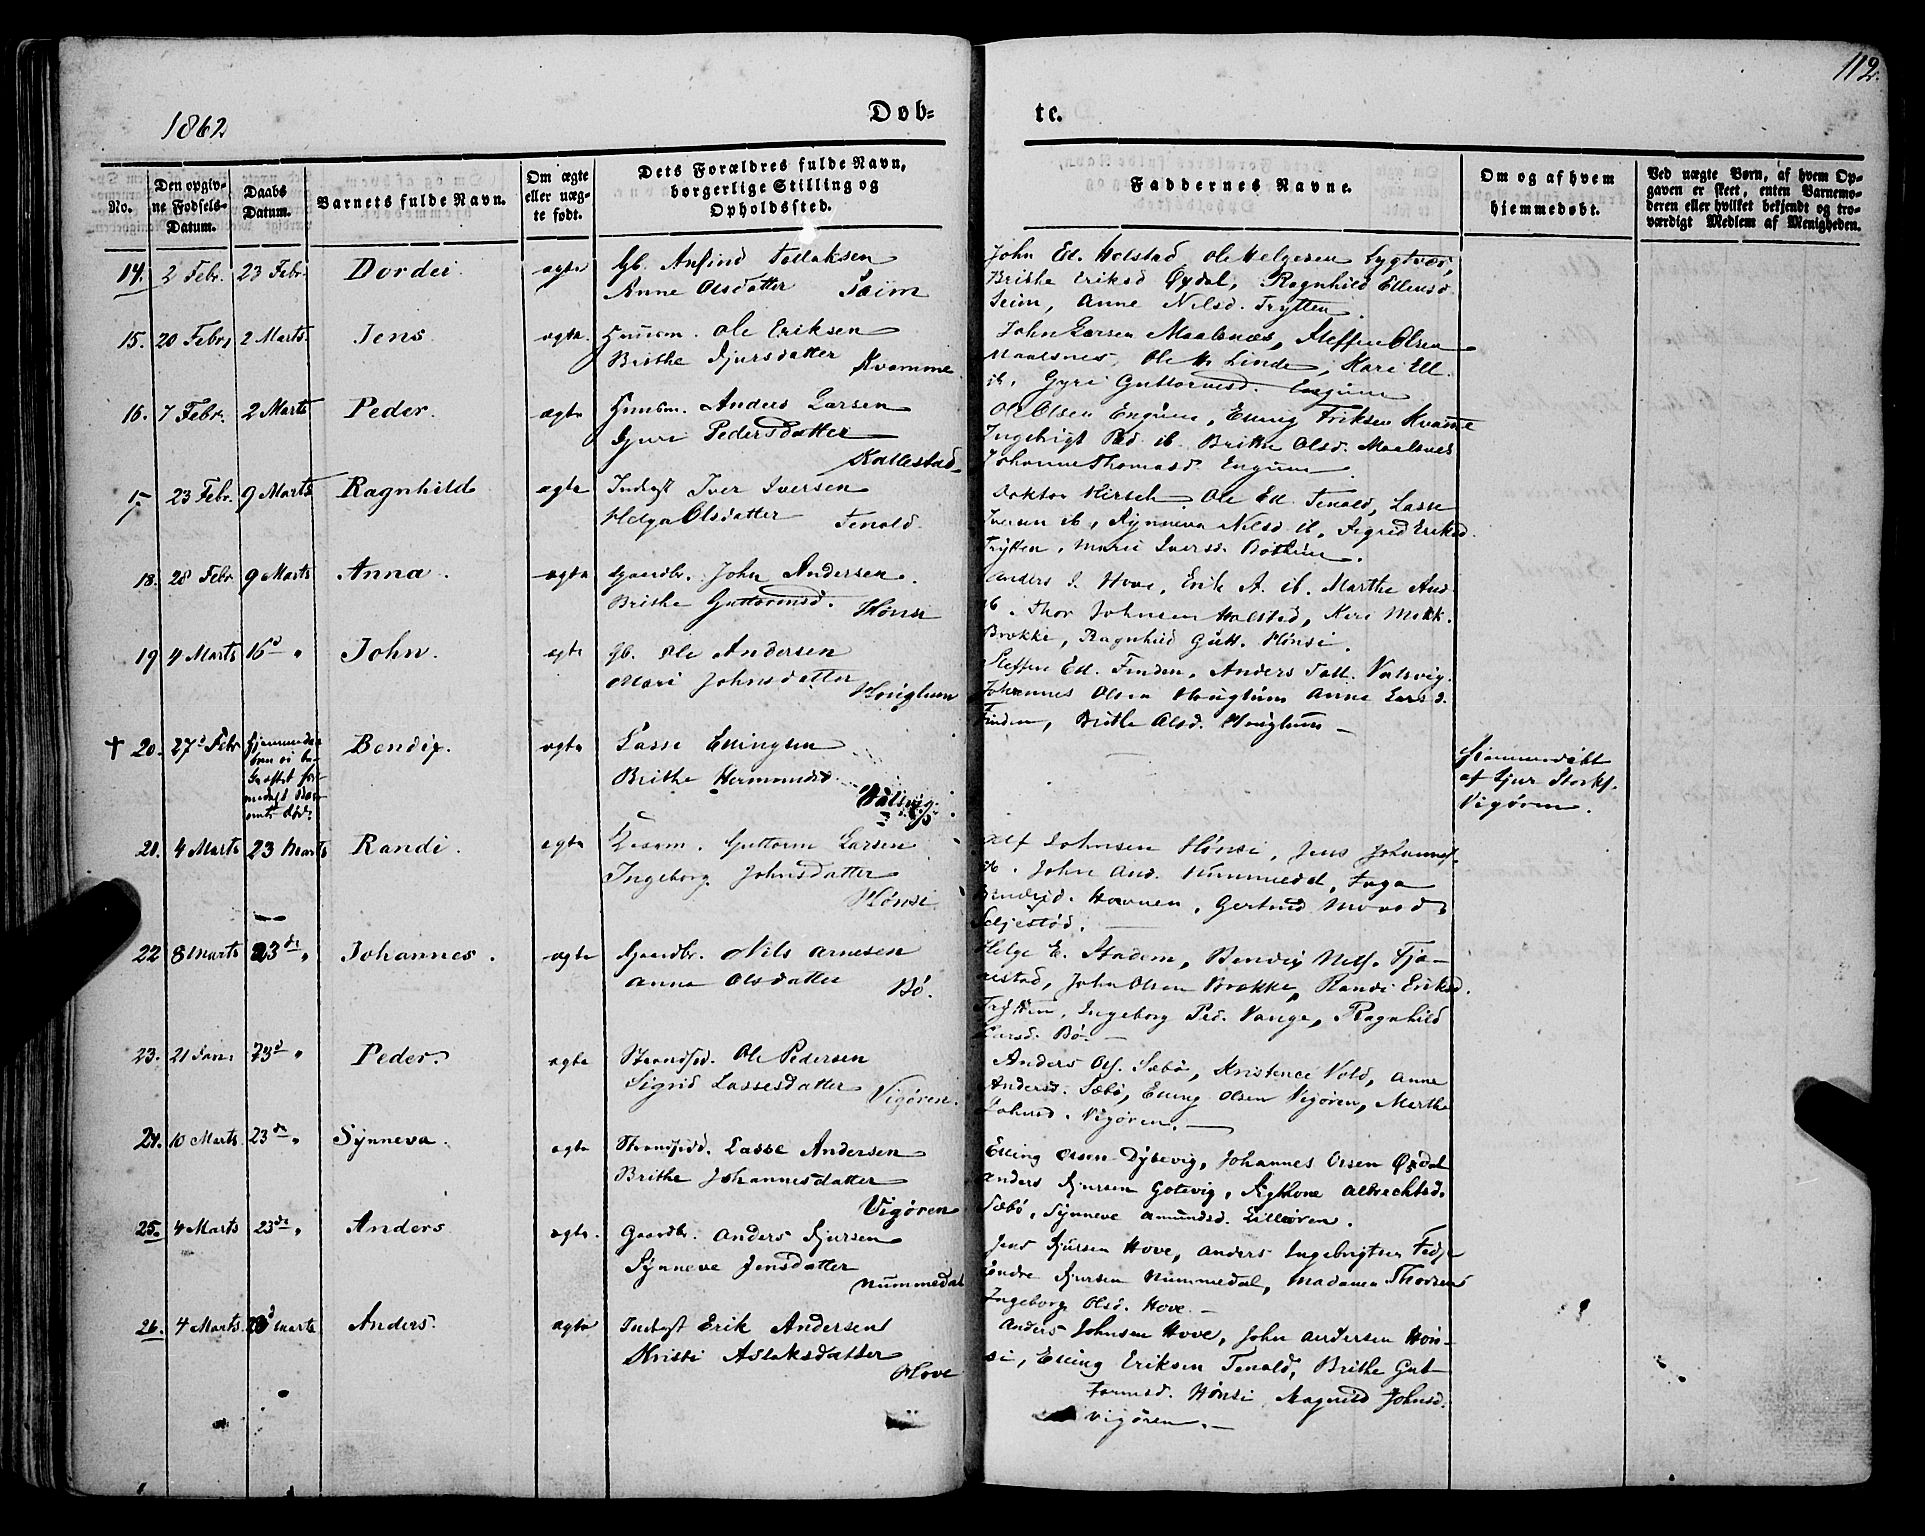 112.
1862
Døb-
te.
No.
Den opgiv-
ne Fødsels-
Datum.
Daabs
Datum.
Barnets fulde Navn.
Om ægte
eller uæg-
te født.
Dets Forældres fulde Navn,
borgerlige Stilling og
Opholdssted.
Faddernes Navne.
Om og af hvem
hjemmedøbt.
Ved uægte Børn, af hvem Op-
gaven er skeet, enten Barnemo-
deren eller hvilket bekjendt og tro-
værdigt Medlem af Menigheden.
14. 2 Febr. 23 Febr. Dordei. ægte Gb. Anfind Tollaksen
Anne Olsdatter Seim
John Ell. Holstad, Ole Helgesen
Brithe Eriksd Øxdal, Ragnhild Ellensd
Seim, Anne Nilsd. Trytten.
15. 20 Febr. 2 Marts. Jens. ægte. Huusm. Ole Eriksen
Brithe Sjursdatter Kvamme.
John Larsen Maalsnæs, Steffen Olsen
Maalsnes, Ole Linde, Kari Ell.
ib. Gyri Guttormsd. Engum
16. 7 Febr. 2 Marts Peder. ægte Huusm. Anders Larsen
Gjuri Pedersdatter
Kallestad
Ole Olsen Engum, Elling Eriksen Kvamme
Ingebrigt Ped. ib. Brithe Olsd. Maalsnes
Johanne Thomasd. Engum
17 23 Febr. 9 Marts Ragnhild ægte Inderst Iver Iversen
Helga Olsdatter Tenold.
Doktor Hirsch, Ole Ell. Tenold, Lasse
Iversen ib, Synneva Nilsd ib, Sigrid Eriksd.
Trytten, Mari Iversd. Böthun.
18. 28 Febr 9 Marts Anna. ægte Gaardbr. John Andersen.
Brithe Guttormsd. Hønsi
Anders J. Hove, Erik A. ib. Marthe And
ib. Thor Johnsen Holstad, Kari Mikk.
Brekke, Ragnhild Gutt. Hönsi.
19 4 Marts 16d " John. ægte Gb. Ole Andersen
Mari Johnsdatter Houglum
Steffen Ell. Finden, Anders Toll. Valsvig.
Johannes Olsen Houglum Anne Larsd.
Finden, Brithe Olsd. Houglum
† 20. 27d Febr Hjemmedøbt
Bendix. ægte Lasse Ellingsen
Brithe Hermundsd.
Valsvig.
Hjemmedøbt
af Sjur Storks.
Vigøren.
21. 4 Marts 23 Marts Randi. ægte Guttorm Larsen
Ingeborg Johnsdatter
Hønsi.
Alf Johnsen Hønsi, Jens Johannes.
ib. John And. Nummedal, Inga
Hovnen, Gertrud
Seljestød.
22 8 Marts 23de " Johannes. ægte Gaardbr. Nils Arnesen
Anna Olsdatter Bö.
Helge E. Stadem, Bendix Nils. Fjæ-
restad, John Olsen Brekke, Randi Eriksd.
Trytten, Ingeborg Ped. Vange, Ragnhild
Larsd. Bö.
23. 21 Jan. 23d " Peder. ægte Strandsid. Ole Pedersen
Sigrid Lassesdatter Vigøren.
Anders Ols. Sæbö, Kristence Vold, Anne
Andersd. Sæbö, Elling Olsen Vigøren, Marthe
Johnsd. Vigøren.
24. 10 Marts. 23de ". Synneva. ægte Strandsidd. Lasse Andersen
Brithe Johannesdatter
Vigøren
Elling Olsen Dybevig, Johannes Olsen Øxdal
Anders Sjursen Gotevig, Albrechtsd.
Sæbö, Synneve Amundsd. Lilleøren.
25. 4 Marts 23de ". Anders ægte. Gaardbr. Anders Sjursen
Synneve Jensdatter
Nummedal
Jens Sjursen Hove, Anders Ingebrigtsen Fedje
Endre Sjursen Nummedal, Madamen Thorsen
Ingeborg Olsd. Hove.
26. 4 Marts. 23d Marts Anders. ægte Inderst Erik Andersen
Kristi Aslaksdatter
Hove
Anders Johnsen Hove, John Andersen Hön-
si, Elling Eriksen Tenold, Brithe Gut-
tormsd. Hönsi, Magnild Johnsd.
Vigøren.